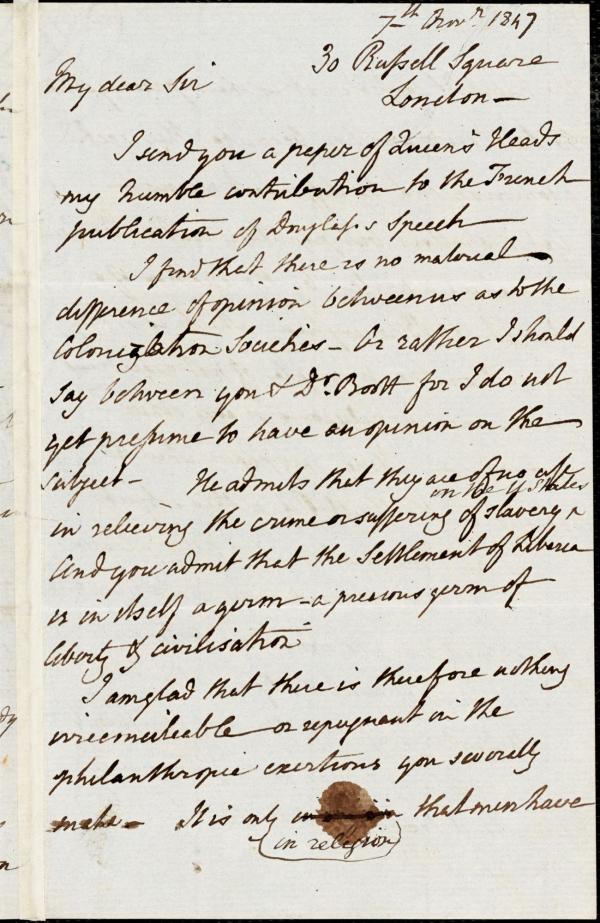 7th Novr 1847
30 Russell Square
London —
My dear Sir
I send you a paper of Queen's Heads
my humble contribution to the French
publication of Douglass's Speech
I find that there is no material
difference of opinion between us as to the
Colonization Societies – Or rather I should
say between you & Dr. Boott for I do not
yet presume to have an opinion on the
subject – He admits that they are of no use
in relieving the crime or suffering of slavery ^ in the U States
And you admit that the Settlement of Liberia
is in itself a germ – a precious germ of
liberty & civilisation
I am glad that there is therefore nothing
irreconcileable or repugnant in the
philanthropic exertions you severally
make – It is only that men have
(in religion)